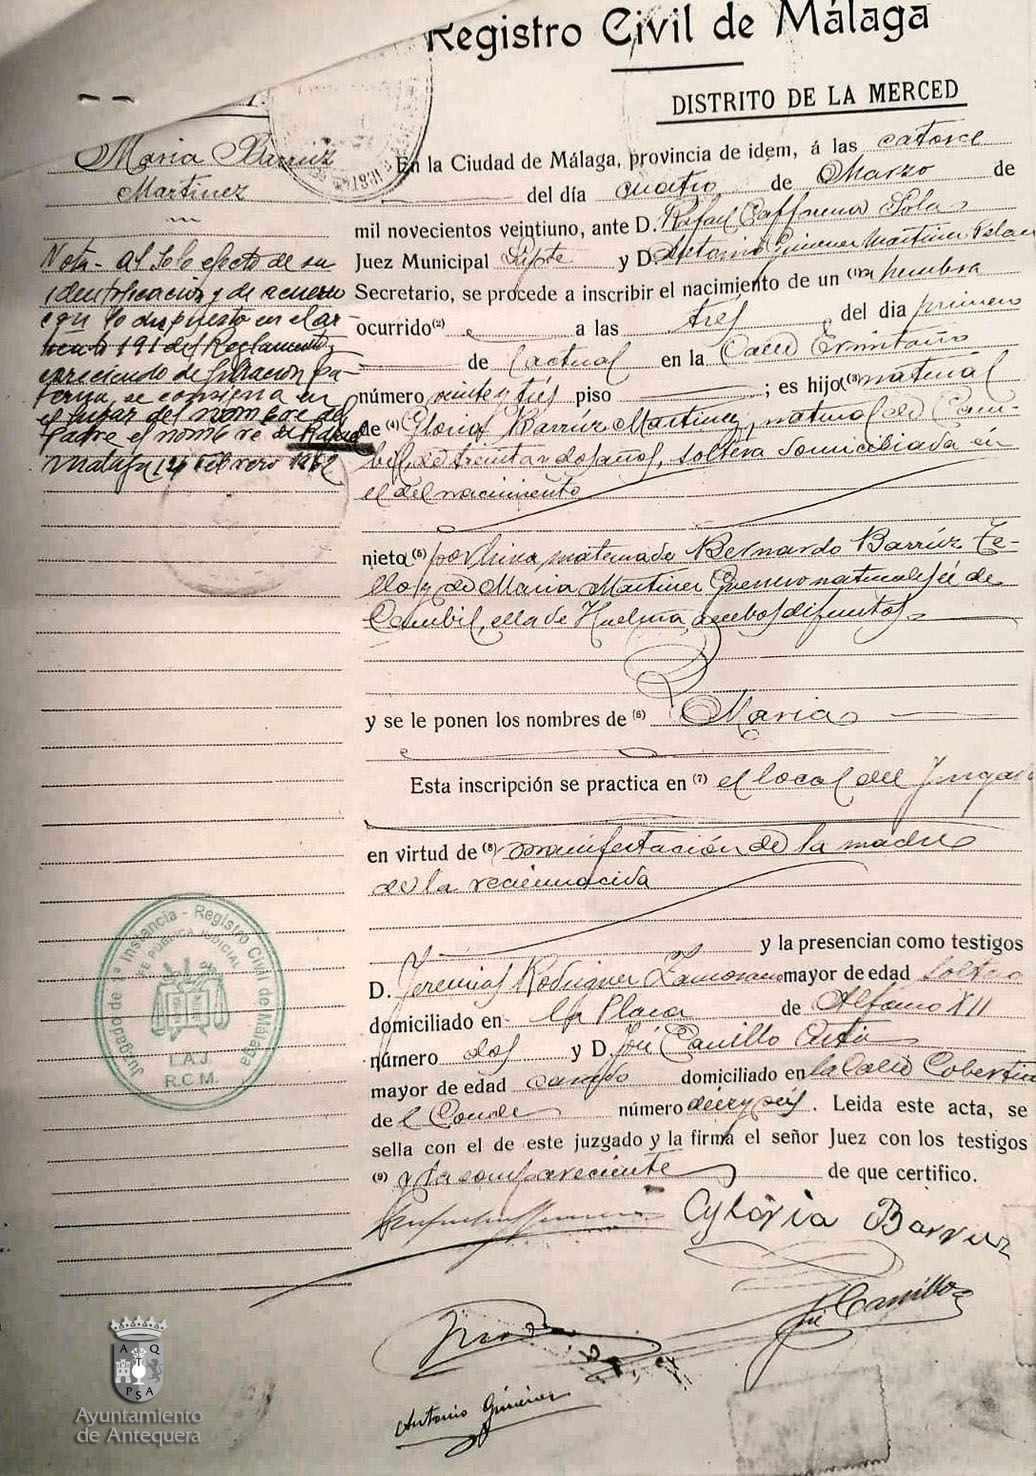 Registro Civil de Málaga
DISTRITO DE LA MERCED
Maria Barruz
Martinez
Nota - Al solo efecto de su
identificacion y de acuerdo
con lo dispuesto en el ar-
191 del Reglamento,
de filiacion pa-
terna, se consigna en
el lugar del nombre del
Padre el nombre de
Malaga 12 Febrero 1962
En la Ciudad de Málaga, provincia de idem, á las catorce
del día cuatro de Marzo de
mil novecientos veintiuno, ante D. Rafael Caffarena Sola
Juez Municipal Supte y D. Antonio Gimenez Martinez
Secretario, se procede a inscribir el nacimiento de un (1) a hembra
ocurrido (2) a las tres del día primero
de l actual en la Calle Ermitaño
número veinte y tres piso ; es hijo (3) natural
de (4) Gloria Barrúz Martinez, natural de Cam-
bil, de treinta y dos años, soltera domiciliada en
el del nacimiento
nieto (5) por linea materna de Bernardo Barrúz Te-
llo y de Maria Martinez Guerrero naturales él de
Cambil, ella de Huelma, ambos difuntos
y se le ponen los nombres de (6) Maria
Esta inscripción se practica en (7) el local del Juzgado
en virtud de (8) manifestación de la madre
de la recien nacida
y la presencian como testigos
D. Jeremias Rodriguez Zamorano mayor de edad soltero
domiciliado en la Plaza de Alfonso XII
número dos y D. José Carrillo
mayor de edad casado domiciliado en la Calle Cobertizo
de l Conde número diez y seis. Leida este acta, se
sella con el de este juzgado y la firma el señor Juez con los testigos
(9) y la compareciente de que certifico.
Gloria Barruz
José Carrillo
Antonio Gimenez
Juzgado de 1ª Instancia - Registro Civil de Málaga
FE PÚBLICA JUDICIAL
L.A.J.
R.C.M.
A T Q
P S A
Ayuntamiento
de Antequera